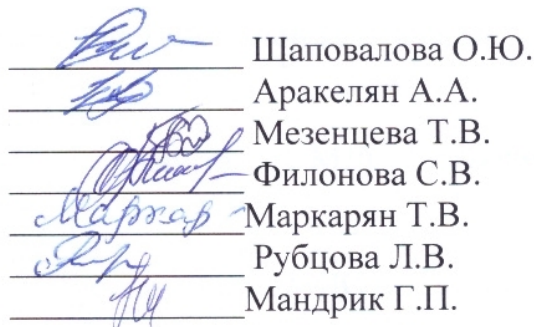 Шаповалова О.Ю.
Аракелян А.А.
Мезенцева Т.В.
Филонова С.В.
Маркар Маркарян Т.В.
Рубцова Л.В.
Мандрик Г.П.